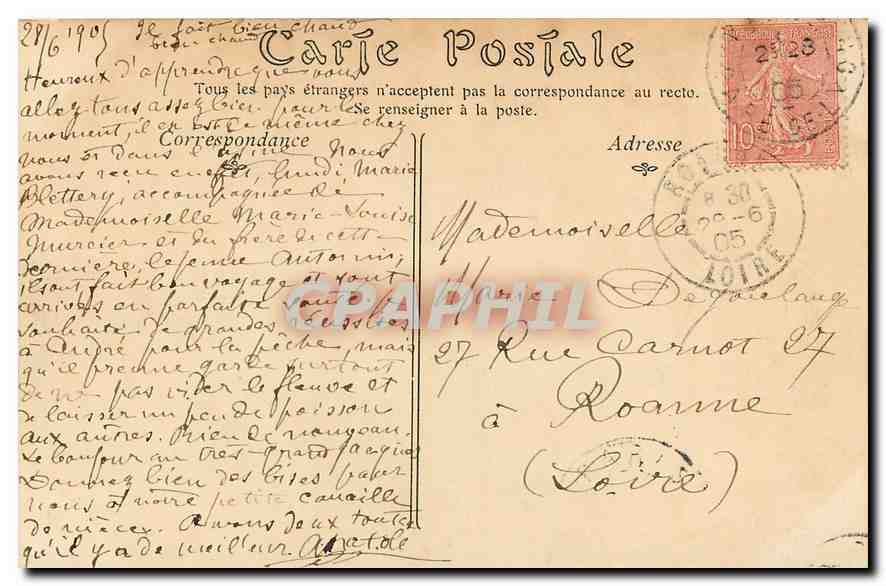 28/6 1905 Il fait bien chaud
bien chaud
Carte Postale
Tous les pays étrangers n'acceptent pas la correspondance au recto.
Se renseigner à la poste.
Correspondance
Adresse
Heureux d'apprendre que vous
allez tous assez bien. pour le
moment, il en est de même chez
nous et dans l'usine. Nous
avons reçu lundi, Marie
Blettery, accompagnée de
Mademoiselle Marie-Louise
Mercier et du frère de cette
dernière, le jeune Antonin,
ils ont fait bon voyage et sont
arrivés en parfaite santé. Je
souhaite de grandes réussites
à André pour la pêche, mais
qu'il prenne garde surtout
de ne pas vider le fleuve et
de laisser un peu de poisson
aux autres. Rien de nouveau.
Le bonjour au très-grand Jacques
Donnez bien des bises pour
nous à notre petite canaille
de nièce. A vous deux toutes
qu'il y a de meilleur. Anatole
REPUBLIQUE FRANÇAISE
10
28
05
8 30
28-6
05
LOIRE
Mademoiselle
Marie Degoulange
27 Rue Carnot 27
à Roanne
(Loire)
CPAPHIL